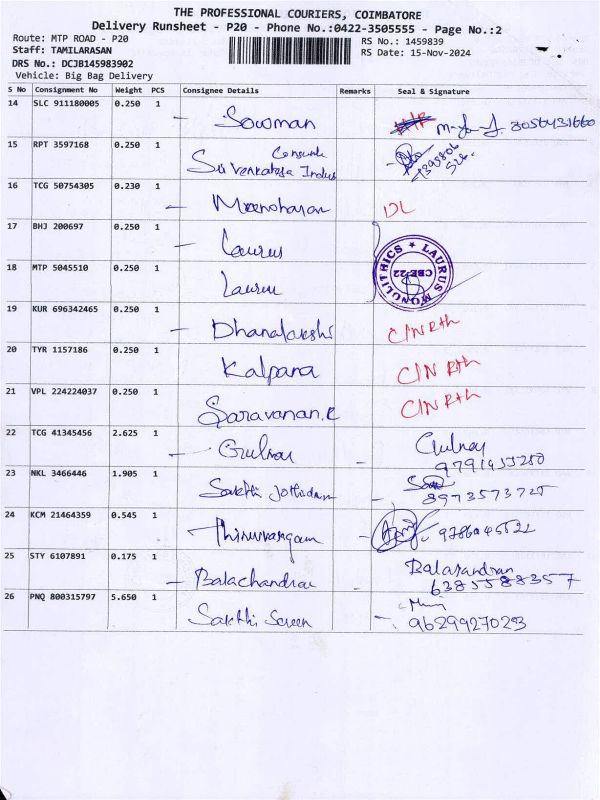 THE PROFESSIONAL COURIERS, COIMBATORE
Delivery Runsheet - P20 - Phone No.:0422-3505555 - Page No.:2
Route: MTP ROAD - P20
RS No.: 1459839
Staff: TAMILARASAN
RS Date: 15-Nov-2024
DRS No.: DCJB145983902
Vehicle: Big Bag Delivery
S No Consignment No Weight PCS Consignee Details Remarks Seal & Signature
14 SLC 911180005 0.250 1 Sowman
15 RPT 3597168 0.250 1 Sri Venkatesa Indus
16 TCG 50754305 0.230 1 Meenoharan DL
17 BHJ 200697 0.250 1 Laurus
LAURUS MONOLITHICS
CBE-22
18 MTP 5045510 0.250 1 Laurus
19 KUR 696342465 0.250 1 Dhanalakshi C/N Rth
20 TYR 1157186 0.250 1 Kalpana C/N Rth
21 VPL 224224037 0.250 1 Saravanan.R C/N Rth
22 TCG 41345456 2.625 1 Gulnar Gulnar
23 NKL 3466446 1.905 1 Sakthi Jothidam 8973573725
24 KCM 21464359 0.545 1 Thiruvarangam
25 STY 6107891 0.175 1 Balachandran Balarandran
6385588357
26 PNQ 800315797 5.650 1 Sakthi Screen 9629927023